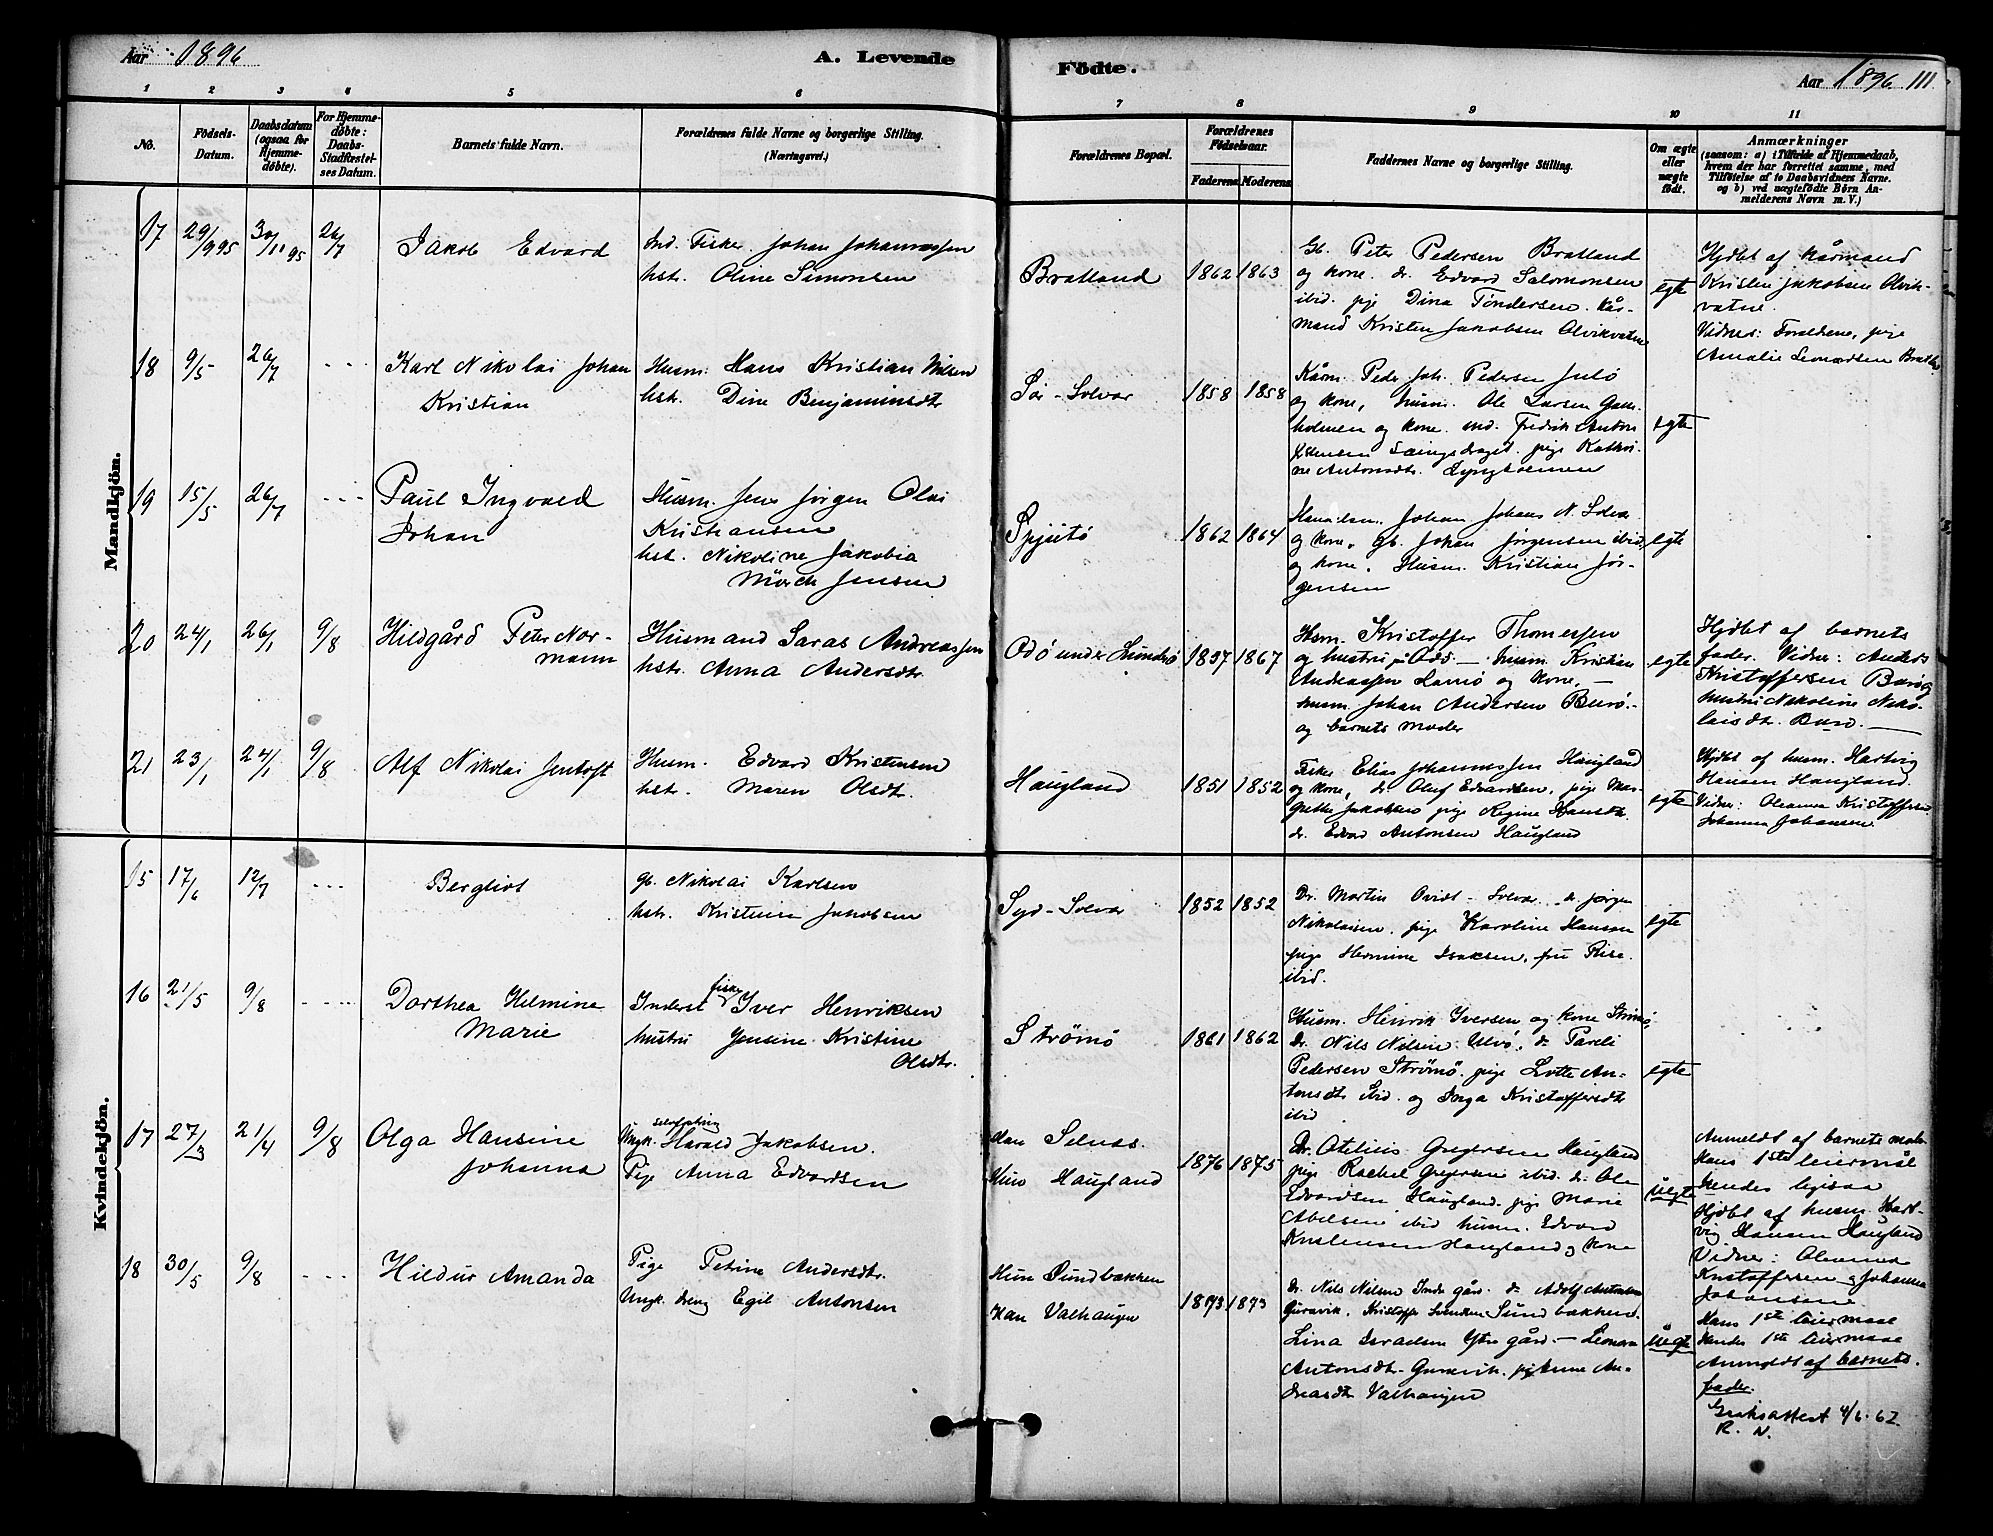 Aar 1896
A. Levende
Födte.
Aar 1896 111
1 2 3 4 5 6 7 8 9 10 11
No.
Födsels-
Datum.
Daabsdatum
(ogsaa for
Hjemme-
döbte).
For Hjemme-
döbte:
Daabs-
Stadfæstel-
ses Datum.
Barnets fulde Navn.
Forældrenes fulde Navne og borgerlige Stilling.
(Næringsvei.)
Forældrenes Bopæl.
Forældrenes
Födselsaar.
Faderens Moderens
Faddernes Navne og borgerlige Stilling.
Om ægte
eller
uægte
födt.
Anmærkninger
(saasom: a) i Tilfælde af Hjemmedaab,
hvem der har forrettet samme, med
Tilföielse af to Daabsvidners Navne.
og b) ved uægtefödte Börn An-
melderens Navn m. V.)
Mandkjön.
17 29/9 95 30/11 95 26/7
Jakob Edvard
Ind. Fisker Johan Johannessen
hst. Oline Simonsen
Bratland
1862 1863
Gb. Peter Pedersen Bratland
og kone. dr. Edvard Salomonsen
ibid. pige Dina Tøndersen. Kår-
mand Kristen Jakobsen Olvikvatne
egte
Hjdbt af kårmand
Kristen Jakobsen Olvik-
vatne.
Vidner: Forældrene, pige
Amalie Leonardsen
18 9/5 26/7 - - -
Karl Nikolai Johan
Kristian
Husm. Hans Kristian Nilsen
hst. Dine Benjaminsdtr
Sør-Solvær
1858 1858
Kårm. Peder Joh. Pedersen
og kone, husm. Ole Larsen
holmen og kone. ind. Fredrik Anton
pige Kathri-
ne Antonsdtr.
egte
19 15/5 26/7 - - -
Paul Ingvald
Johan
Husm. Jens Jørgen Olai
Kristiansen
hst. Nikoline Jakobia
Mörch Jensen
Spjutø
1862 1864
Johan Johans N. Solvær
og kone. gb. Johan Jørgensen ibid.
og kone. Husm. Kristian Jør-
gensen
egte
20 24/1 26/1 9/8
Hildgård Peter Nor-
mann
Husmand Saras Andreassen
hst. Anna Andersdtr.
Odö under Lundø
1857 1867
Husm. Kristoffer Thomessen
og hustru på Odö — husm. Kristian
Andreassen og kone. —
husm. Johan Andersen Burø. -
og barnets moder
egte
Hjdbt af barnets
fader. Vidner: Anders
Kristoffersen Burø og
hustru Nikoline Niko-
laisdtr. Burø. —
21 23/1 24/1 9/8
Alf Nikolai Jentoft
Husm. Edvard Kristensen
hst. Maren Olsdtr.
Haugland
1851 1852
Fisker Elias Johannessen Haugland
og kone, dr. Oluf Edvardsen, pige Mar-
grethe Jakobsen pige Regine Hansdtr.
dr. Edvar Antonsen Haugland
egte
Hjdbt af husm. Hartvig
Hansen Haugland.
Vidner: Oleanna Kristoffersen
Johanna Johansen.
Kvindekjön.
15 17/6 12/7 - - -
Bergliot
gb. Nikolai Karlsen
hst. Kristine Jakobsen
Syd-Solvær
1852 1852
Dr. Martin Ovidt - Solvær. dr. Jørgen
Nikolaisen. pige Karoline Hansen
pige Hermine Isaksen, fru Riise.
ibid.
egte
16 21/5 9/8 - - - -
Dorthea Helmine
Marie
Inderst fisker Iver Henriksen
hustru Jensine Kristine
Olsdtr.
Strömö
1861 1862
Husm. Henrik Iversen og kone Strömö,
Dr. Nils Nilsen Ulvö. dr. Pareli
Pedersen Strömö. pige Lotte An-
tonsdtr ibid. og Inga Kristoffersdtr
ibid
egte
17 27/3 21/4 9/8
Olga Hansine
Johanna
Ungk. Harald Jakobsen.
Pige Anna Edvardsen
Han Selnæs.
Hun Haugland
1876 1875
Dr. Otelius Gregersen Haugland
pige Rachel Gregersen ibid. dr. Ole
Edvardsen Haugland. pige Marie
Abelsen ibid husm. Edvard
Kristensen Haugland og kone
uegte
Anmeldt af barnets moder
Hans 1ste leiermål
hendes ligesaa
Hjdbt af husm. Hart-
vig Hansen Haugland
Vidner: Oleanna
Kristoffersen og Johanna
Johansen
18 30/5 9/8 - - -
Hildur Amanda
Pige Petrine Andersdtr.
Ungk. dreng Egil Antonsen
Hun Sundbakken
Han Valhaugen
1873 1873
Dr. Nils Nilsen Indregård. dr. Adolf Antonsen
Gurvik. Kristoffer Svendsen Sundbakken.
Lina Israelsen Ytregård — Leonora
Antonsdtr. Gurvik. pige Anne An-
dreasdtr Valhaugen
uegte
Hans 1ste leiermaal
Hendes 1ste leiermaal
Anmeldt af barnets
fader.
Gratisattest 4/6-62
R. N.